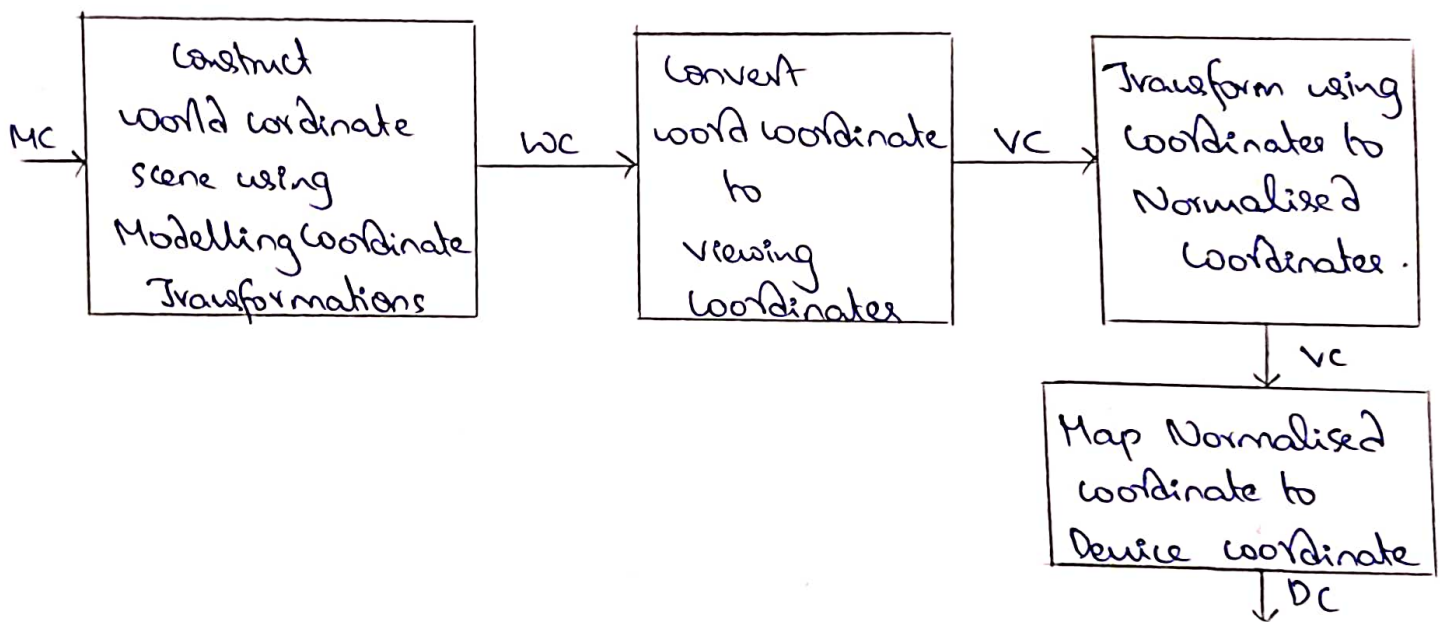 MC
Construct
world cordinate
scene using
Modelling Coordinate
Transformations
WC
Convert
word coordinate
to
viewing
Coordinates
VC
Transform using
Coordinates to
Normalised
Coordinates.
VC
Map Normalised
coordinate to
Device coordinate
DC